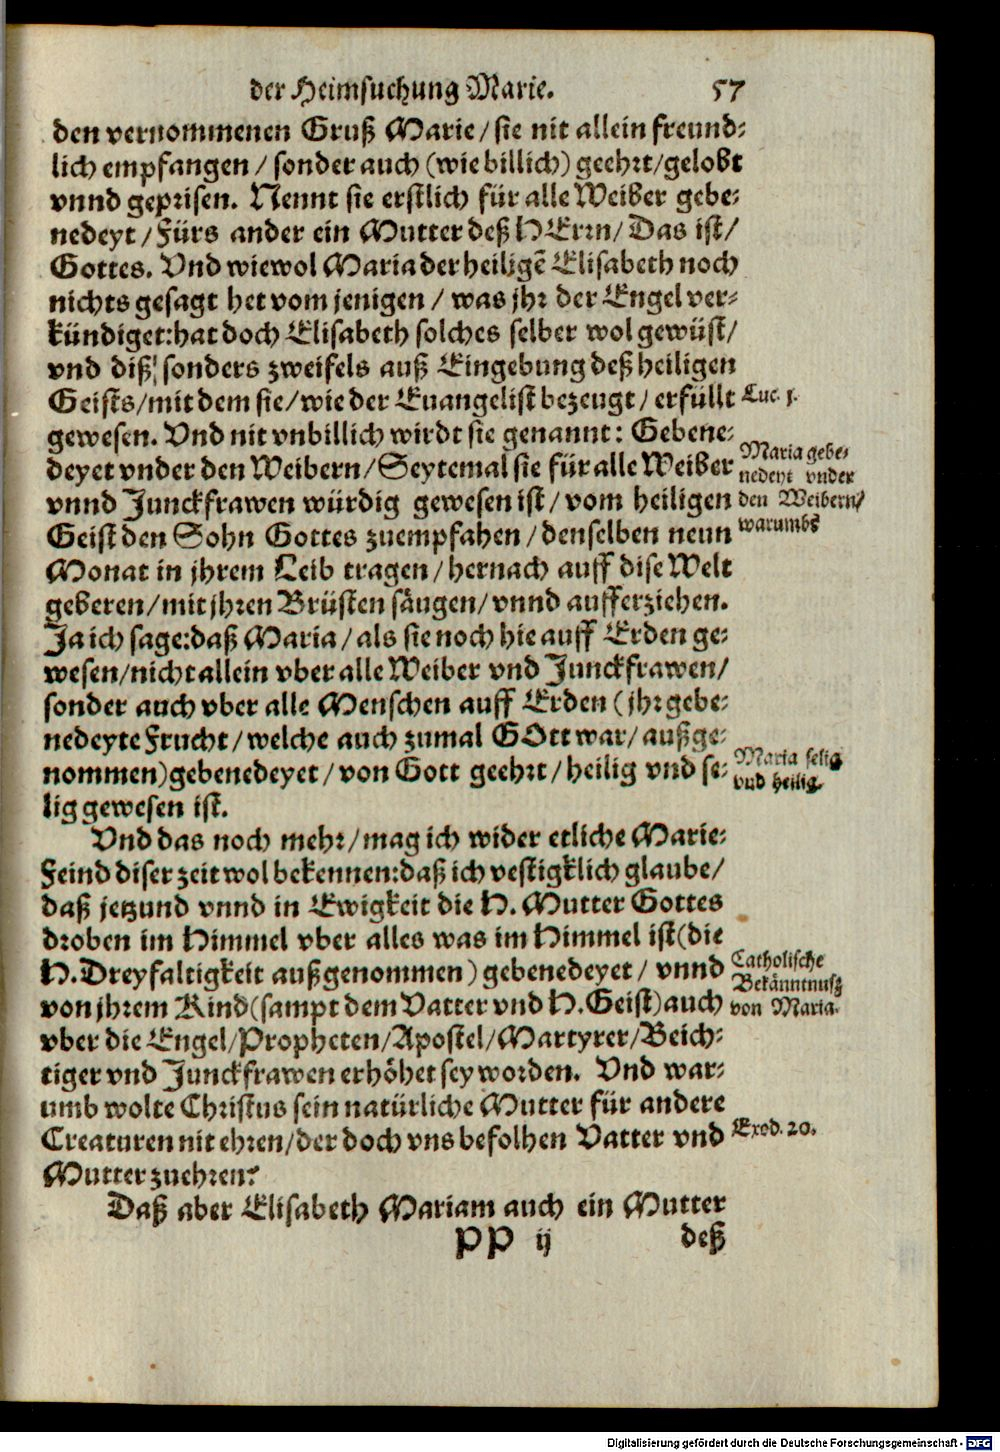 der Heimsuchung Marie. 57
den vernommenen Gruß Marie/ sie nit allein freund-
lich empfangen/ sonder auch (wie billich) geehrt/ gelobt
vnnd geprisen. Nennt sie erstlich für alle Weiber gebe-
nedeyt/ Fürs ander ein Mutter deß HErrn/ Das ist/
Gottes. Vnd wiewol Maria der heiligē Elisabeth noch
nichts gesagt het vom jenigen/ was jhr der Engel ver-
kündiget: hat doch Elisabeth solches selber wol gewüst/
vnd diß/ sonders zweifels auß Eingebung deß heiligen
Geists/ mit dem sie/ wie der Euangelist bezeugt/ erfüllt
Luc. j.
gewesen. Vnd nit vnbillich wirdt sie genannt: Gebene-
deyet vnder den Weibern/ Seytemal sie für alle Weiber
vnnd Junckfrawen würdig gewesen ist/ vom heiligen
Geist den Sohn Gottes zuempfahen/ denselben neun
Maria gebe-
nedeyt vnder
den Weibern/
warumbs
Monat in jhrem Leib tragen/ hernach auff dise Welt
geberen/ mit jhren Brüsten säugen/ vnnd aufferziehen.
Ja ich sage: daß Maria/ als sie noch hie auff Erden ge-
wesen/ nicht allein vber alle Weiber vnd Junckfrawen/
sonder auch vber alle Menschen auff Erden (jhr gebe-
nedeyte Frucht/ welche auch zumal GOtt war/ außge-
nommen) gebenedeyet/ von Gott geehrt/ heilig vnd se-
Maria selig
vnd heilig.
lig gewesen ist.
Vnd das noch mehr/ mag ich wider etliche Marie-
Feind diser zeit wol bekennen: daß ich vestigklich glaube/
daß jetzund vnnd in Ewigkeit die H. Mutter Gottes
droben im Himmel vber alles was im Himmel ist (die
H. Dreyfaltigkeit außgenommen) gebenedeyet/ vnnd
von jhrem Kind (sampt dem Vatter vnd H. Geist) auch
Catholische
Bekänntnuß
von Maria.
vber die Engel/ Propheten/ Apostel/ Martyrer/ Beich-
tiger vnd Junckfrawen erhöhet sey worden. Vnd war-
umb wolte Christus sein natürliche Mutter für andere
Creaturen nit ehren/ der doch vns befolhen Vatter vnd
Exod. 20.
Mutter zuehren?
Daß aber Elisabeth Mariam auch ein Mutter
PP ij deß
Digitalisierung gefördert durch die Deutsche Forschungsgemeinschaft - DFG